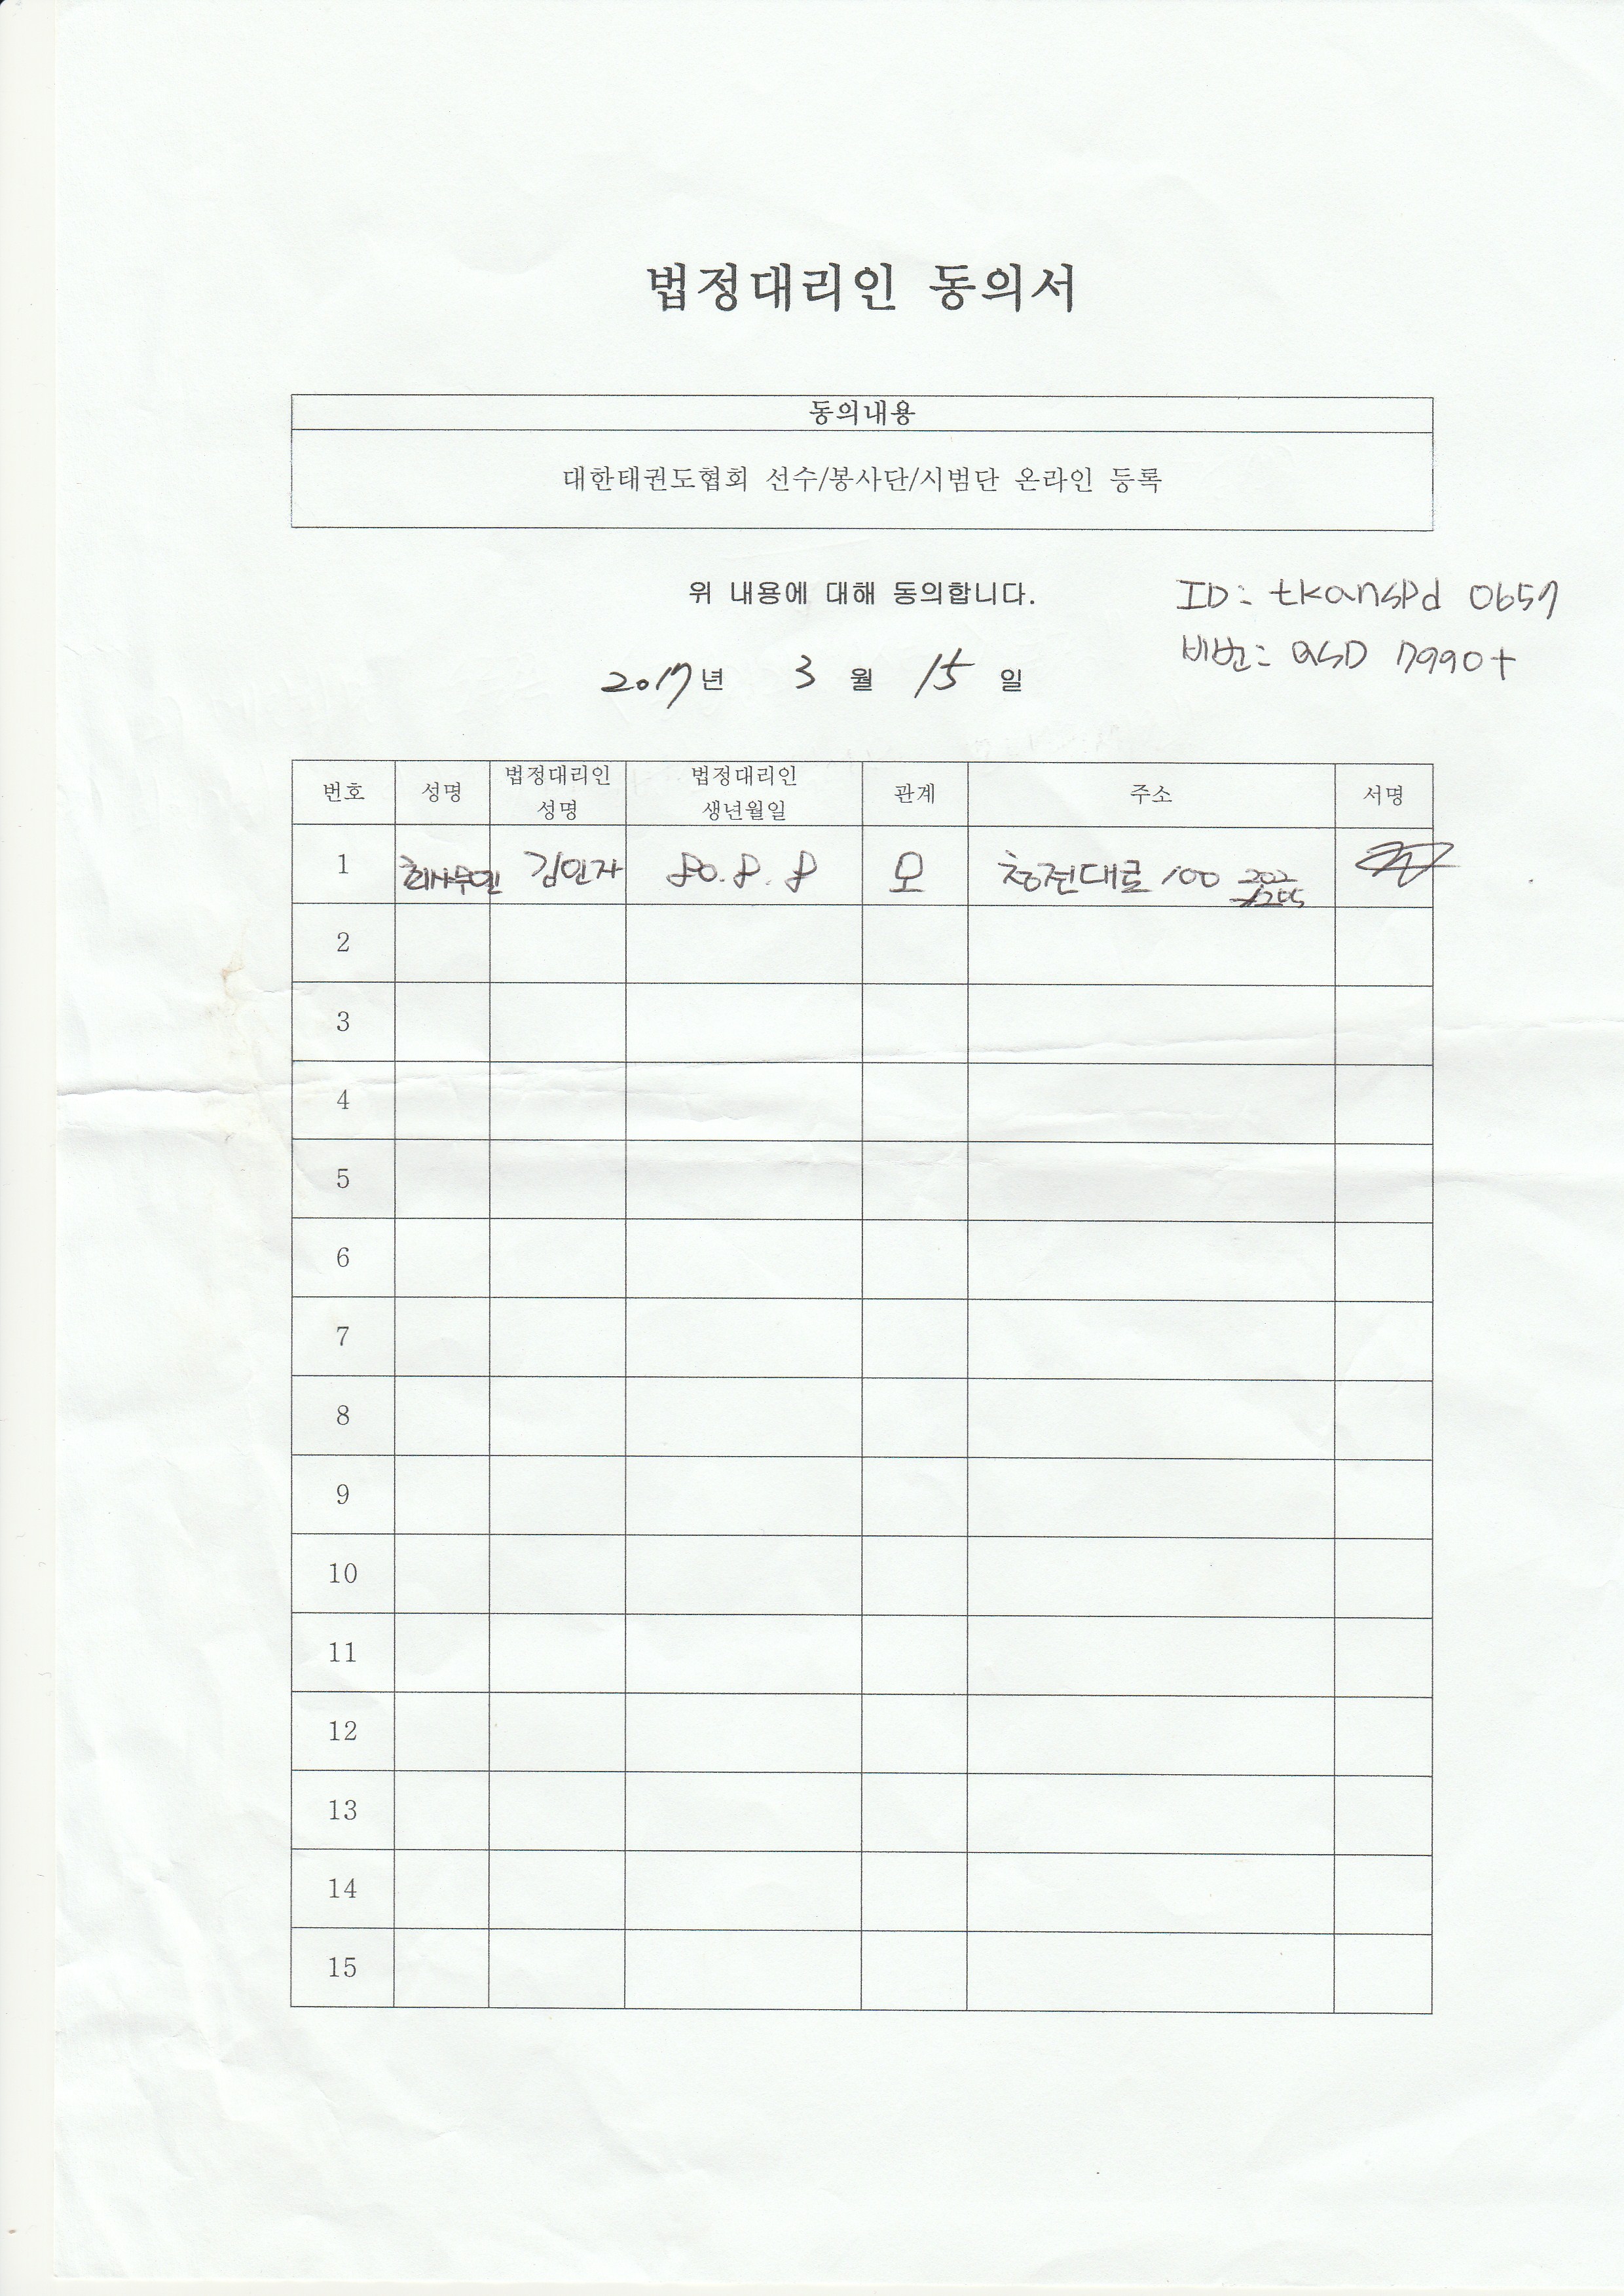 법정대리인 동의서
동의내용
대한태권도협회 선수/봉사단/시범단 온라인 등록
위 내용에 대해 동의합니다.
ID: tkanspd 0657
비번: asD 7990+
2017년 3월 15일
번호 성명 법정대리인 성명 법정대리인 생년월일 관계 주소 서명
1 김인자 80.8.8 모 청전대로 100 202/1205
2
3
4
5
6
7
8
9
10
11
12
13
14
15